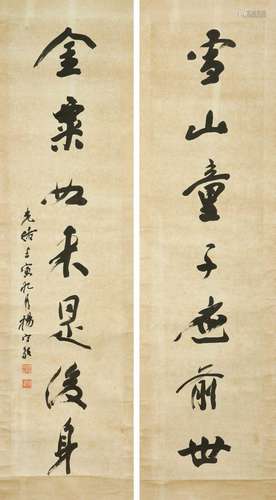 雪山童子應前世
金粟如來是後身
光緒壬寅九月楊守敬